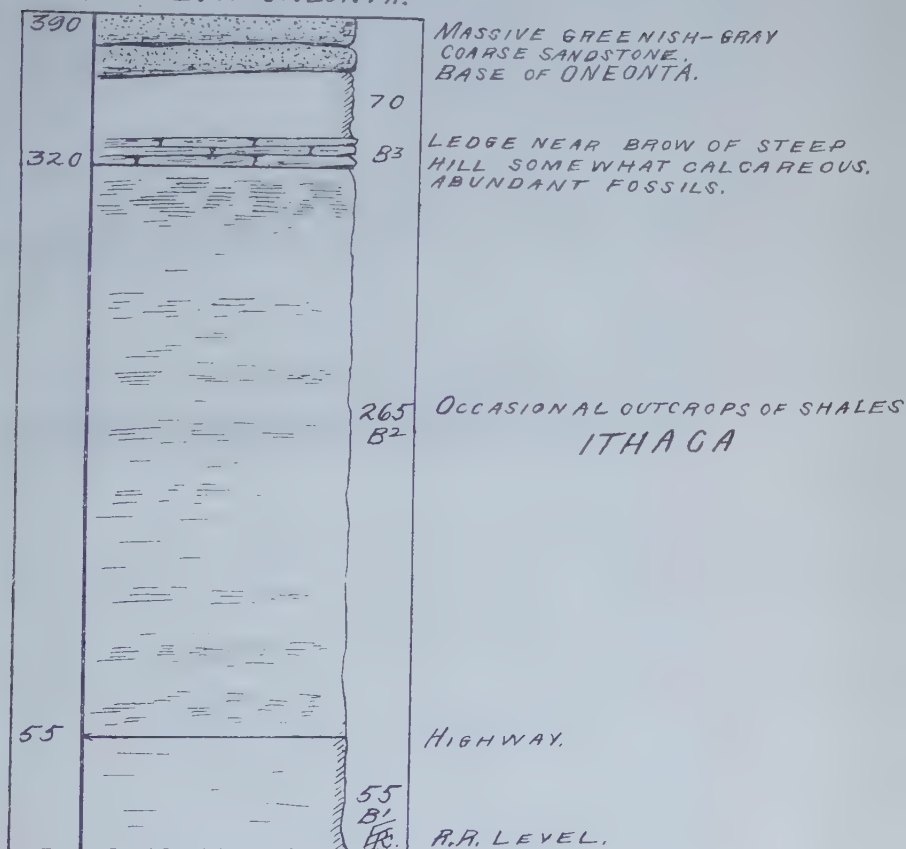 ONEONTA.
390
MASSIVE GREENISH-GRAY
COARSE SANDSTONE.
BASE OF ONEONTA.
70
320
B3
LEDGE NEAR BROW OF STEEP
HILL SOMEWHAT CALCAREOUS.
ABUNDANT FOSSILS.
265
B2
OCCASIONAL OUTCROPS OF SHALES
ITHACA
55
HIGHWAY.
55
B1
R.R. LEVEL.